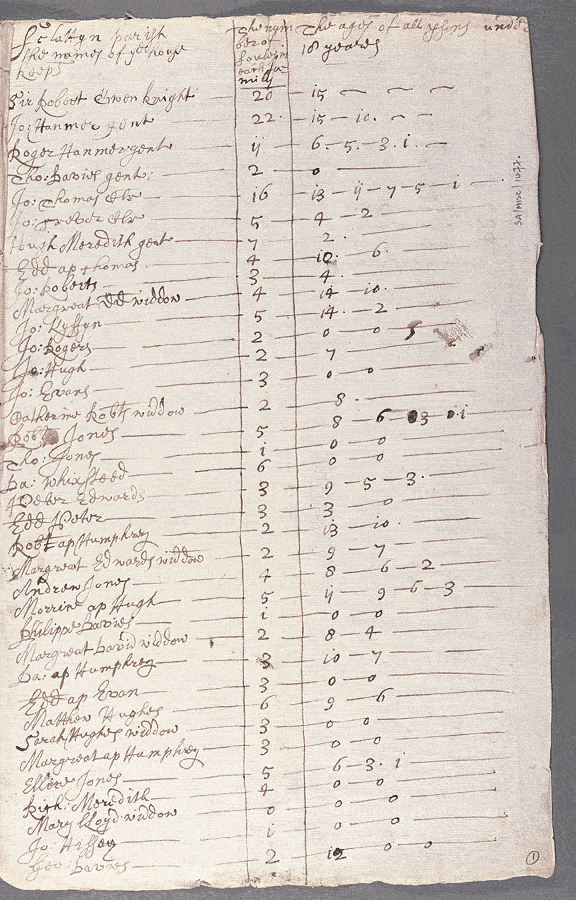 Sclattyn parish
the names of ye house
keeps
The num
ber of
soules in
each fa
mily
The ages of all psons under
18 yeares
Sir Robert Owen Knight 20 15
Jo: Hanmer gent 22 15 – 10
Roger Hanmer gent ij 6 – 5 – 3 – 1
Tho: Davies gent: 2 0
Jo: Thomas 16 13 – ij – 7 – 5 – 1
Jo: 5 4 – 2
Hugh Meredith gent 7 2
Edd ap Thomas 4 10 6
Jo: Roberts 3 4
Margreat Dd widdow 4 14 10
Jo: Kyffyn 5 14 – 2
Jo: Rogers 2 0 0
Jo: Hugh 2 7
Jo: Evans 3 0 0
Catherine Robts widdow 2 8
Robt Jones 5 8 6 3 1
Tho: Jones 1 0 0
Da: Whixsteed 6 0 0
Peter Edwards 3 9 – 5 – 3
Edd Peter 3 3 0
Robt ap Humphrey 2 13 – 10
Margreat Edwards widdow 2 9 – 7
Andrew Jones 4 8 6 – 2
Morris ap Hugh 5 ij 9 6 – 3
Philippe Davies 1 0 0
Margreat David widdow 2 8 – 4
Da: ap Humphrey 3 10 – 7
Edd ap Evan 3 0 0
Matthew Hughes 6 9 6
Sarah Hughes widdow 3 0 0
Margreat ap Humphrey 3 0 0
Ellen Jones 5 6 – 3 – 1
Rich: Meredith 4 0 0
Mary Lloyd widdow 0 0 0
Jo: Hussey 1 0 0
Geo: Davies 2 12 0 0
1